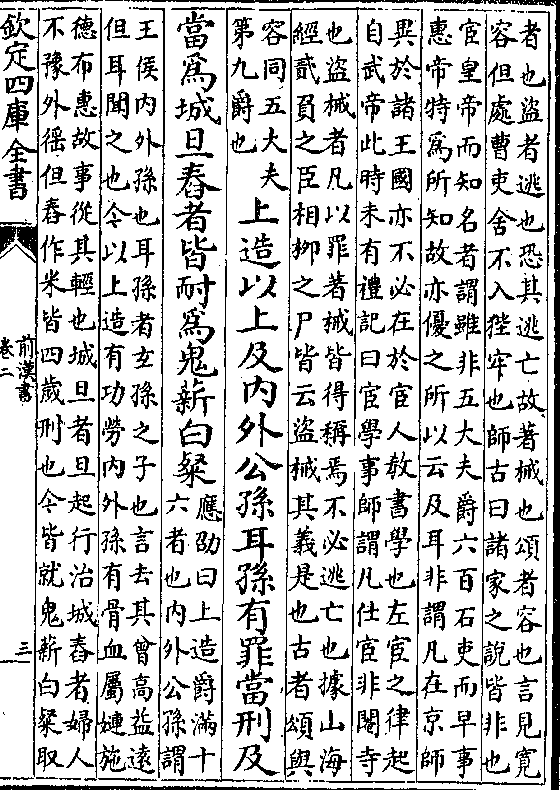 者也盜者逃也恐其逃亡故著械也頌者容也言見寬
容但處曹吏舍不入狴牢也師古曰諸家之說皆非也
宦皇帝而知名者謂雖非五大夫爵六百石吏而早事
惠帝特爲所知故亦優之所以云及耳非謂凡在京師
異於諸王國亦不必在於宦人教書學也左宦之律起
自武帝此時未有禮記曰宦學事師謂凡仕宦非閹寺
也盜械者凡以罪著械皆得稱焉不必逃亡也據山海
經貳員之臣相栁之尸皆云盜械其義是也古者頌與
容同五大夫
第九爵也
上造以上及内外公孫耳孫有罪當刑及
當爲城旦舂者皆耐爲鬼薪白粲
應劭曰上造爵滿十
六者也内外公孫謂
王侯内外孫也耳孫者玄孫之子也言去其曾高益遠
但耳聞之也今以上造有功勞内外孫有骨血屬婕施
德布惠故事從其輕也城旦者旦起行治城舂者婦人
不豫外徭但舂作米皆四歲刑也今皆就鬼薪白粲取
欽定四庫全書
前漢書
卷二
三